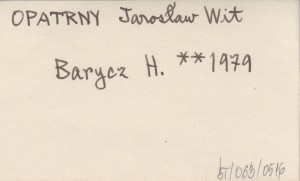 OPATRNY Jarosław Wit
Barycz H. **1979
ST/063/0516